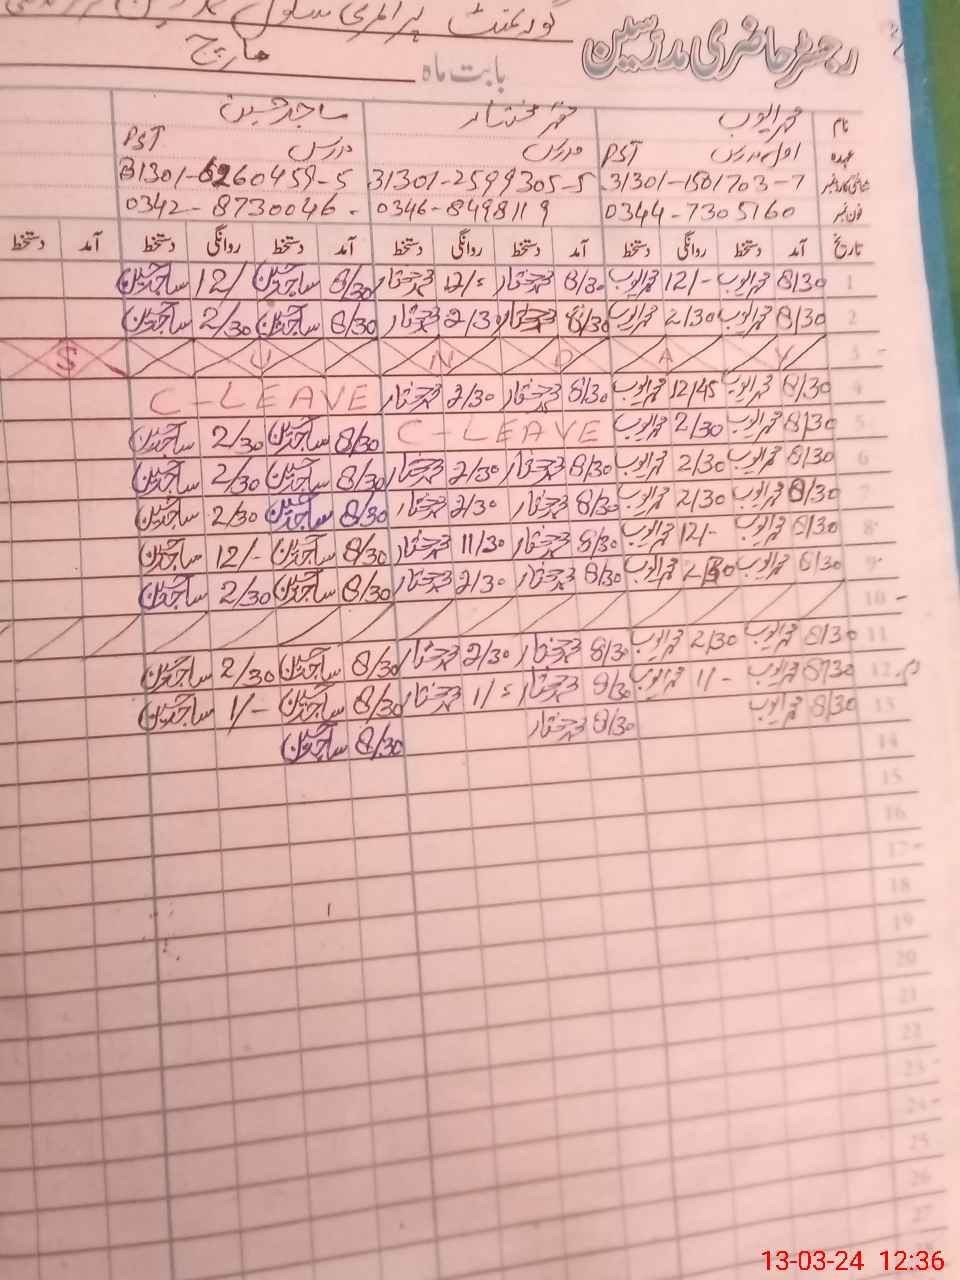 گورنمنٹ پرائمری سکول
رجسٹر حاضری مدرسین
بابت ماہ مارچ
نام محمد ایوب محمد مختار ساجد حسین
عہدہ اول مدرس PST مدرس مدرس PST
شناختی کارڈ نمبر 31301-1501703-7 31301-2599305-5 31301-6260459-5
فون نمبر 0344-7305160 0346-8498119 0342-8730046
تاریخ آمد دستخط روانگی دستخط آمد دستخط روانگی دستخط آمد دستخط روانگی دستخط آمد دستخط
1 8/30 محمد ایوب 12/- محمد ایوب 8/30 محمد مختار 12/- محمد مختار 8/30 ساجد حسین 12/ ساجد حسین
2 8/30 محمد ایوب 2/30 محمد ایوب 8/30 محمد مختار 2/30 محمد مختار 8/30 ساجد حسین 2/30 ساجد حسین
3 S U N D A Y
4 8/30 محمد ایوب 12/45 محمد ایوب 8/30 محمد مختار 2/30 محمد مختار C-LEAVE
5 8/30 محمد ایوب 2/30 محمد ایوب C-LEAVE 8/30 ساجد حسین 2/30 ساجد حسین
6 8/30 محمد ایوب 2/30 محمد ایوب 8/30 محمد مختار 2/30 محمد مختار 8/30 ساجد حسین 2/30 ساجد حسین
7 8/30 محمد ایوب 2/30 محمد ایوب 8/30 محمد مختار 2/30 محمد مختار 8/30 ساجد حسین 2/30 ساجد حسین
8 8/30 محمد ایوب 12/- محمد ایوب 8/30 محمد مختار 11/30 محمد مختار 8/30 ساجد حسین 12/- ساجد حسین
9 8/30 محمد ایوب 2/30 محمد ایوب 8/30 محمد مختار 2/30 محمد مختار 8/30 ساجد حسین 2/30 ساجد حسین
10
11 8/30 محمد ایوب 2/30 محمد ایوب 8/30 محمد مختار 2/30 محمد مختار 8/30 ساجد حسین 2/30 ساجد حسین
12 8/30 محمد ایوب 1/- محمد ایوب 8/30 محمد مختار 1/- محمد مختار 8/30 ساجد حسین 1/- ساجد حسین
13 8/30 محمد ایوب 8/30 محمد مختار 8/30 ساجد حسین
14
15
16
17
18
19
20
21
22
23
24
25
26
27
28
13-03-24 12:36